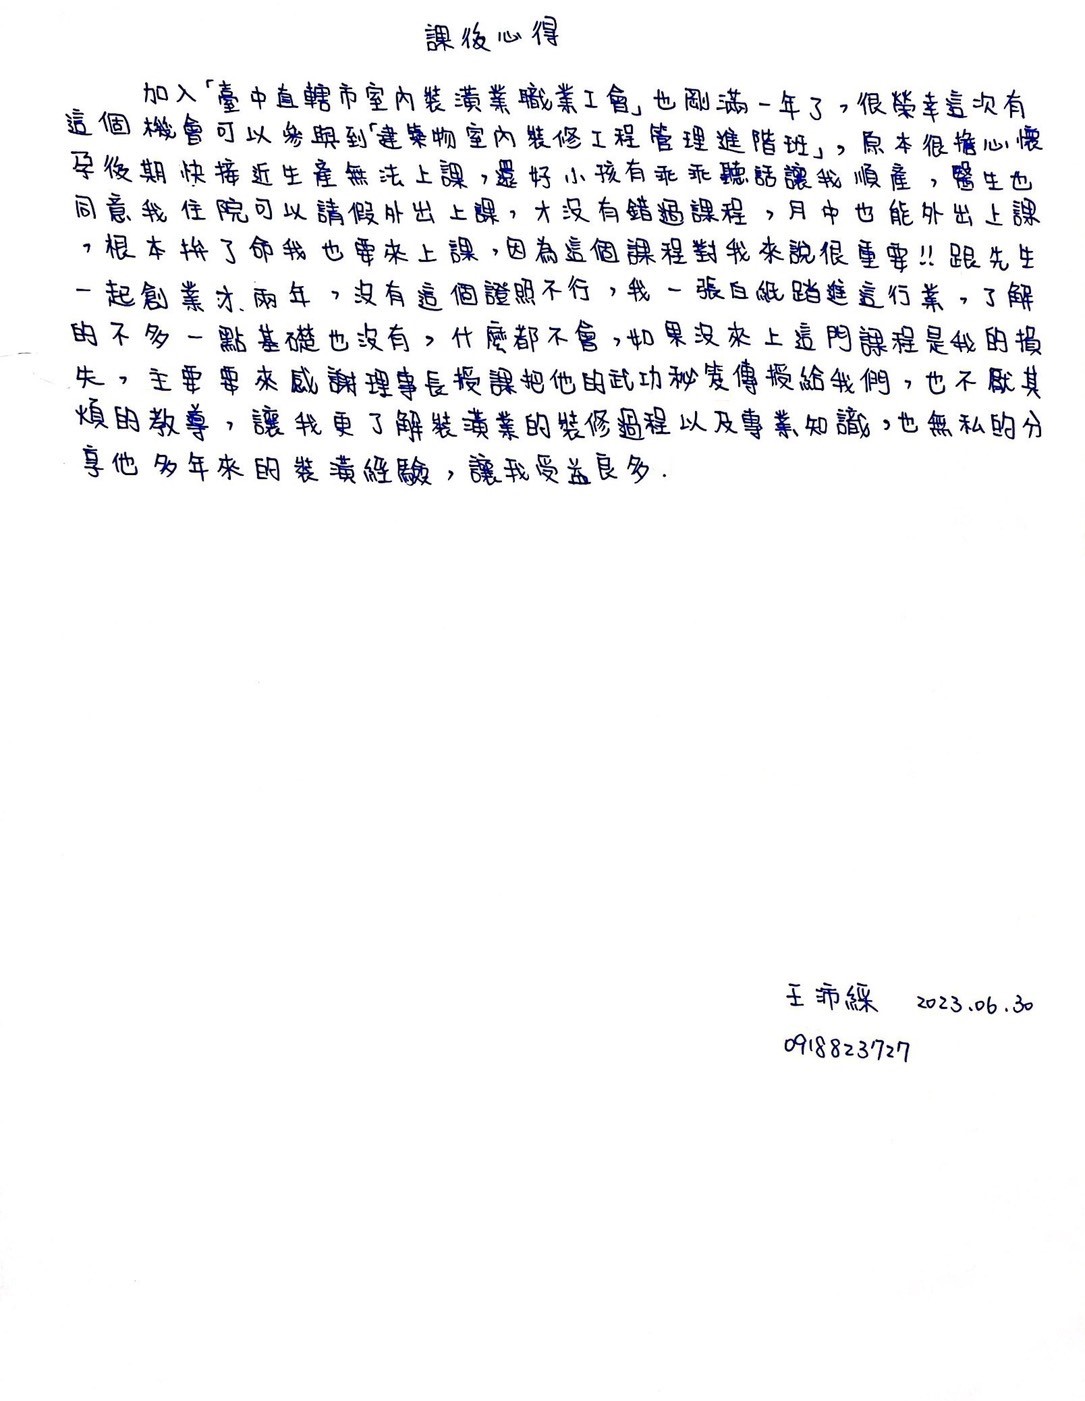 課後心得
加入「臺中直轄市室內裝潢業職業工會」也剛滿一年了，很榮幸這次有
這個機會可以參與到「建築物室內裝修工程管理進階班」，原本很擔心懷
孕後期快接近生產無法上課，還好小孩有乖乖聽話讓我順產，醫生也
同意我住院可以請假外出上課，才沒有錯過課程，月中也能外出上課
，根本拚了命我也要來上課，因為這個課程對我來說很重要!!跟先生
一起創業才兩年，沒有這個證照不行，我一張白紙踏進這行業，了解
的不多一點基礎也沒有，什麼都不會，如果沒來上這門課程是我的損
失，主要要來感謝理事長授課把他的武功秘笈傳授給我們，也不厭其
煩的教導，讓我更了解裝潢業的裝修過程以及專業知識，也無私的分
享他多年來的裝潢經驗，讓我受益良多.
王沛綵 2023.06.30
0918823727